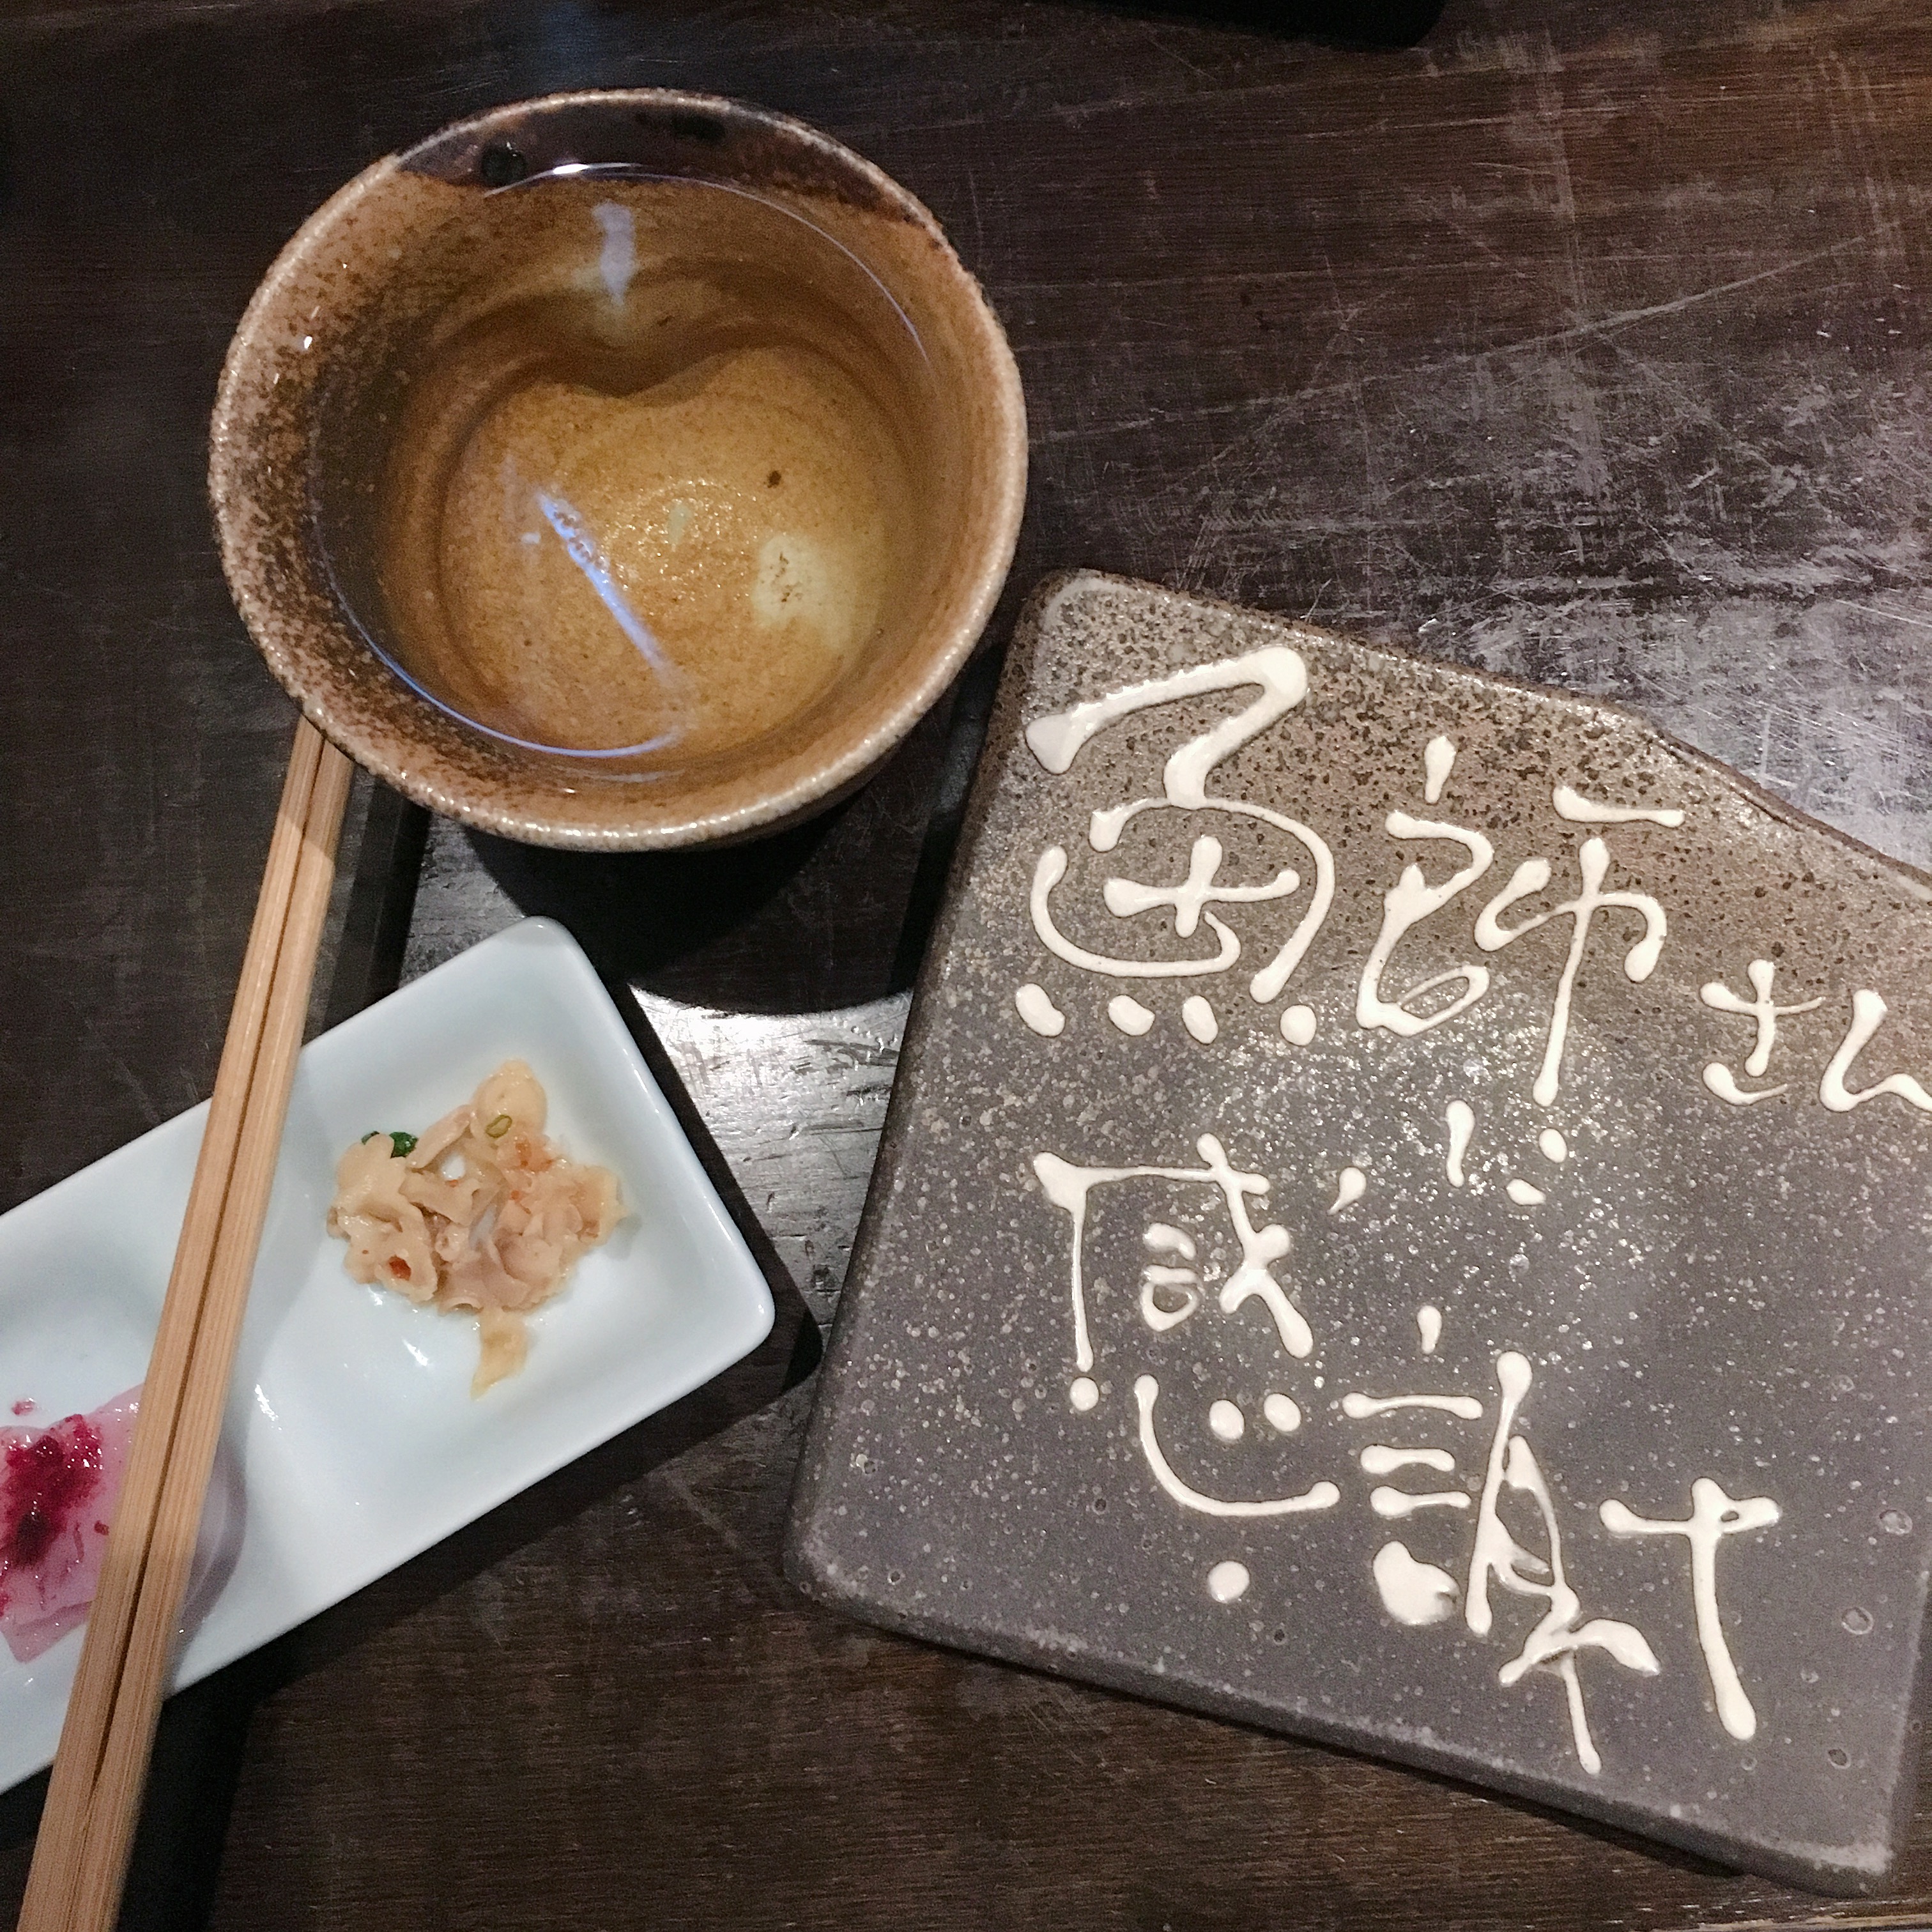 魚師さん
に
感謝